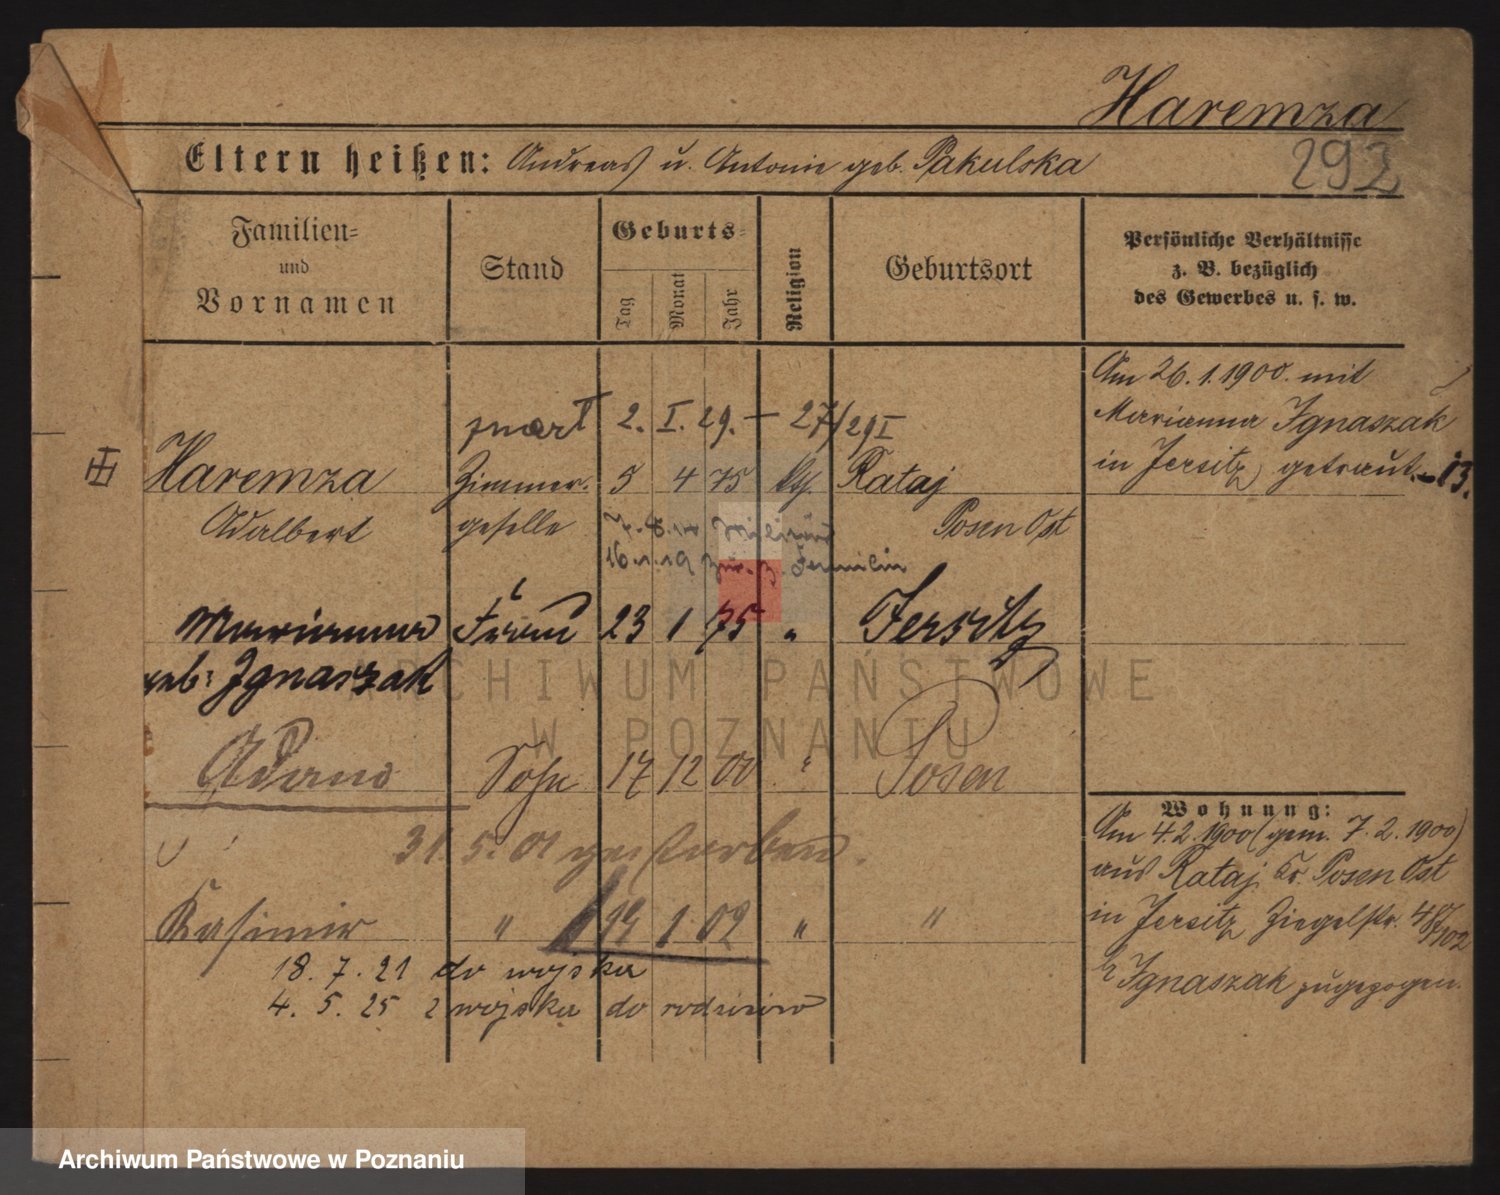 Haremza
292
Eltern heißen: Andreas u. Antonie geb. Pakulska
Familien-
und
Vornamen
Stand
Geburts-
Tag
Monat
Jahr
Religion
Geburtsort
Persönliche Verhältnisse
z. B. bezüglich
des Gewerbes u. s. w.
Am 26.1.1900. mit
Marianna Ignaszak
in Jersitz getraut. 
zmarł 2. I. 29. – 27/29 I
Haremza Zimmer- 5 4 75 kth. Rataj
Adalbert geselle Posen Ost
7.8.14 Militär
16.1.19 zur. z. Familie
Marianna Frau 23 1 75 " Jersitz
geb: Ignaszak
Adam Sohn 17 12 00 " Posen
31.5.01 gestorben.
Kasimir " 1 02 " "
18. 7. 21 do wojska
4. 5. 25 z wojska do rodziców
Wohnung:
Am 4.2.1900 (gem. 7.2.1900)
aus Rataj Kr. Posen Ost
in Jersitz Ziegelstr.
b/ Ignaszak zugezogen.
ARCHIWUM PAŃSTWOWE
W POZNANIU
Archiwum Państwowe w Poznaniu